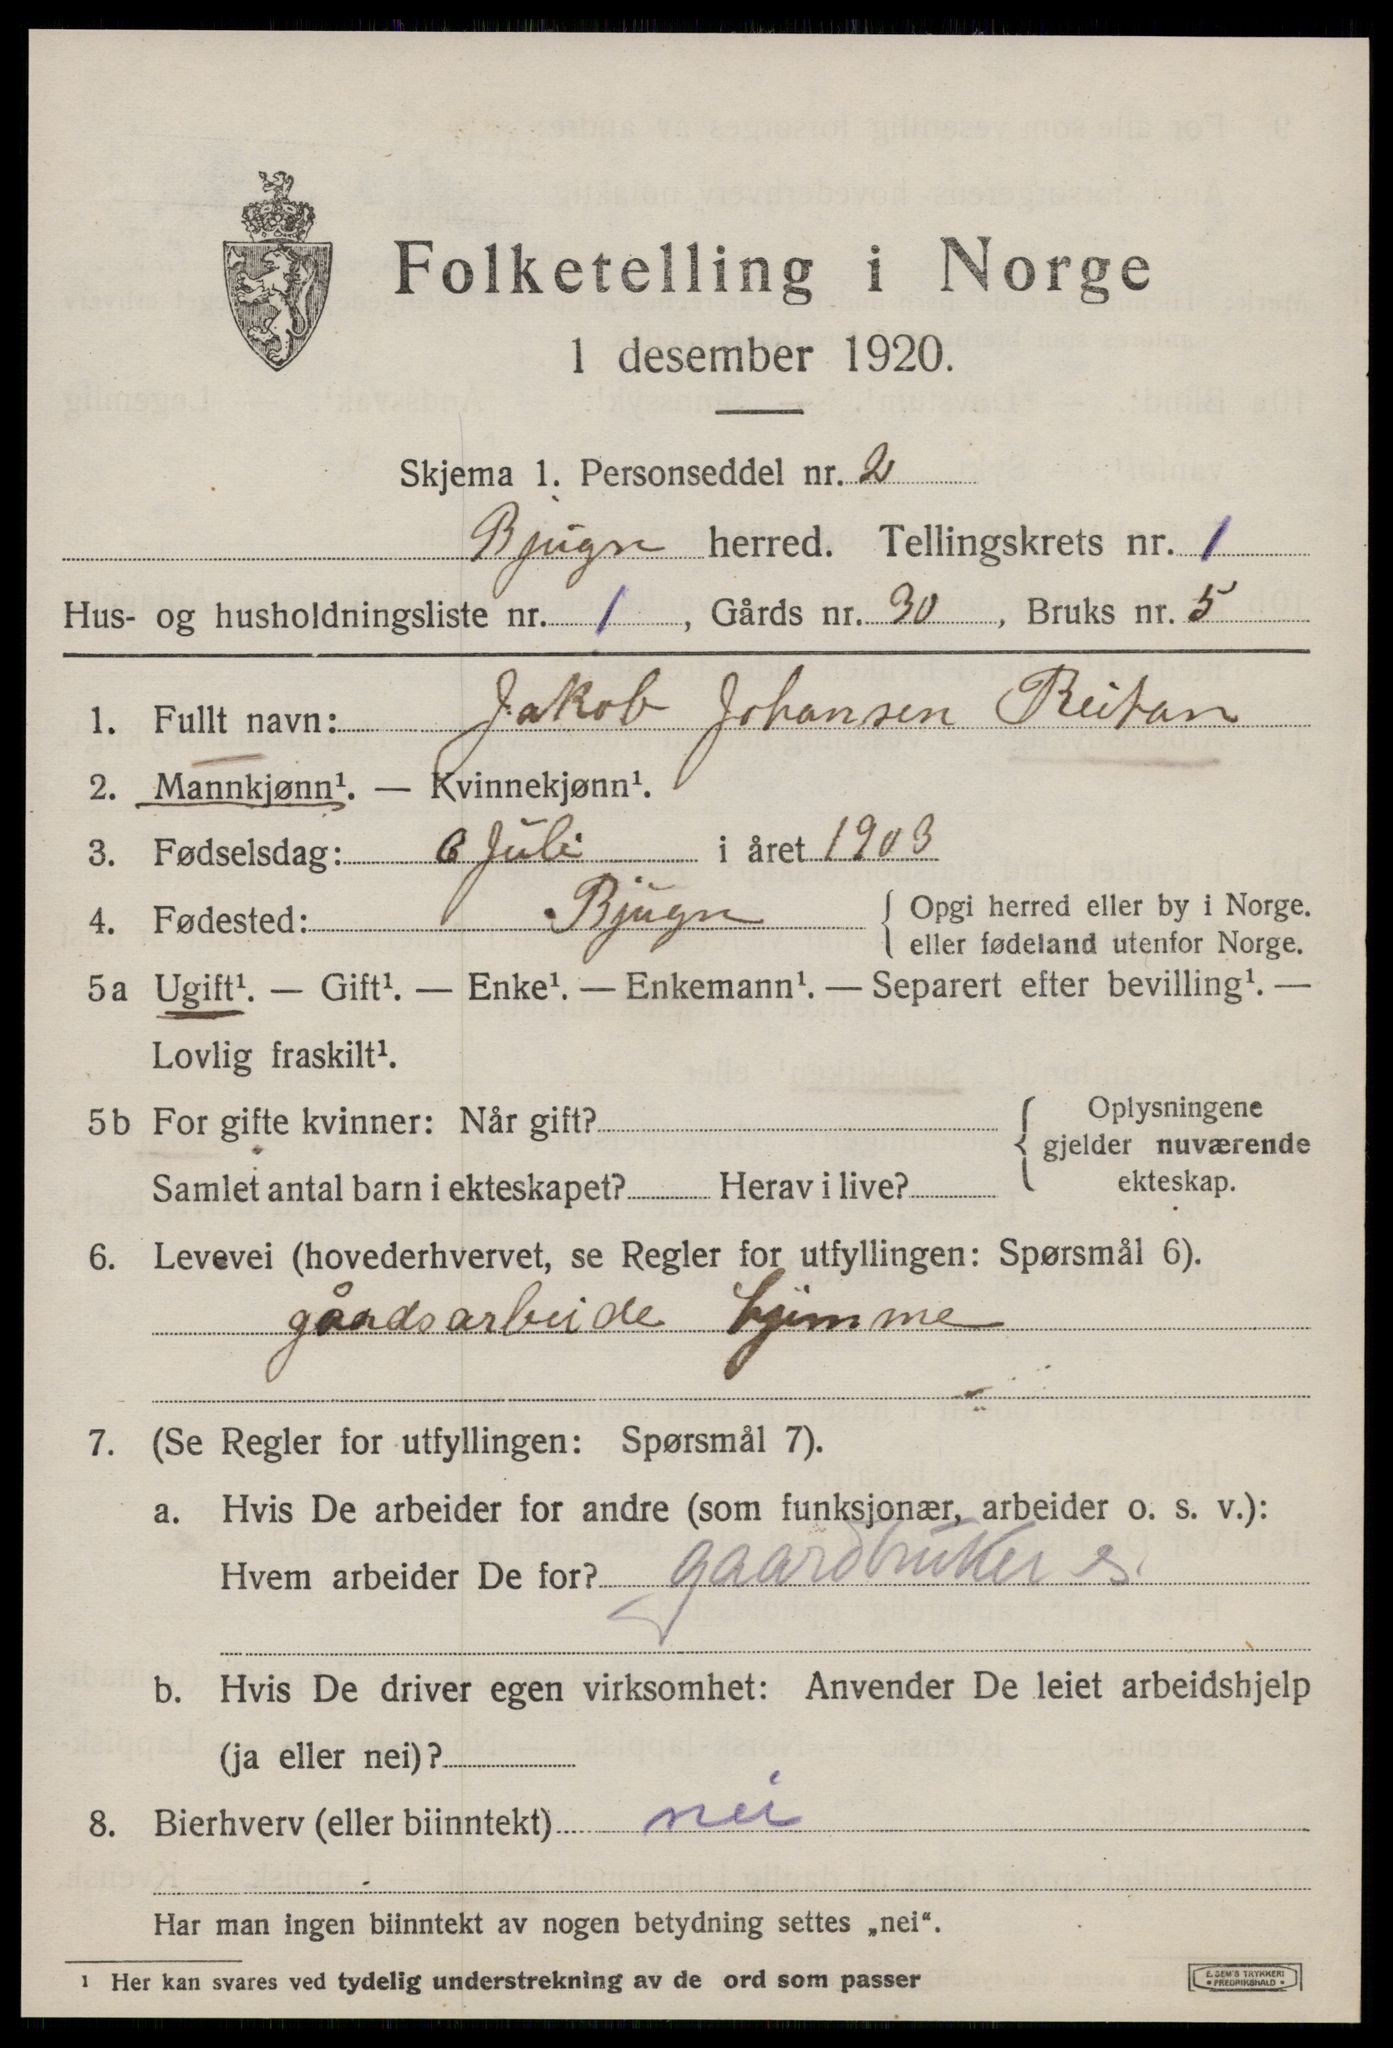 Folketelling i Norge
1 desember 1920.
Skjema 1. Personseddel nr. 2
Bjugn herred. Tellingskrets nr. 1
Hus- og husholdningsliste nr. 1, Gårds nr. 30, Bruks nr. 5
1. Fullt navn: Jakob Johansen Reitan
2. Mannkjønn¹. — Kvinnekjønn¹.
3. Fødselsdag: 6 Juli i året 1903
4. Fødested: Bjugn { Opgi herred eller by i Norge.
eller fødeland utenfor Norge.
5a Ugift¹. — Gift¹. — Enke¹. — Enkemann¹. — Separert efter bevilling¹. —
Lovlig fraskilt¹.
5b For gifte kvinner: Når gift? { Oplysningene
gjelder nuværende
Samlet antal barn i ekteskapet? Herav i live? ekteskap.
6. Levevei (hovederhvervet, se Regler for utfyllingen: Spørsmål 6).
gåardsarbeide hjemme
7. (Se Regler for utfyllingen: Spørsmål 7).
a. Hvis De arbeider for andre (som funksjonær, arbeider o. s. v.):
Hvem arbeider De for? gaardbruker s.
b. Hvis De driver egen virksomhet: Anvender De leiet arbeidshjelp
(ja eller nei)?
8. Bierhverv (eller biinntekt) nei
Har man ingen biinntekt av nogen betydning settes „nei“.
¹ Her kan svares ved tydelig understrekning av de ord som passer
E. SEM'S TRYKKERI
• FREDRIKSHALD •